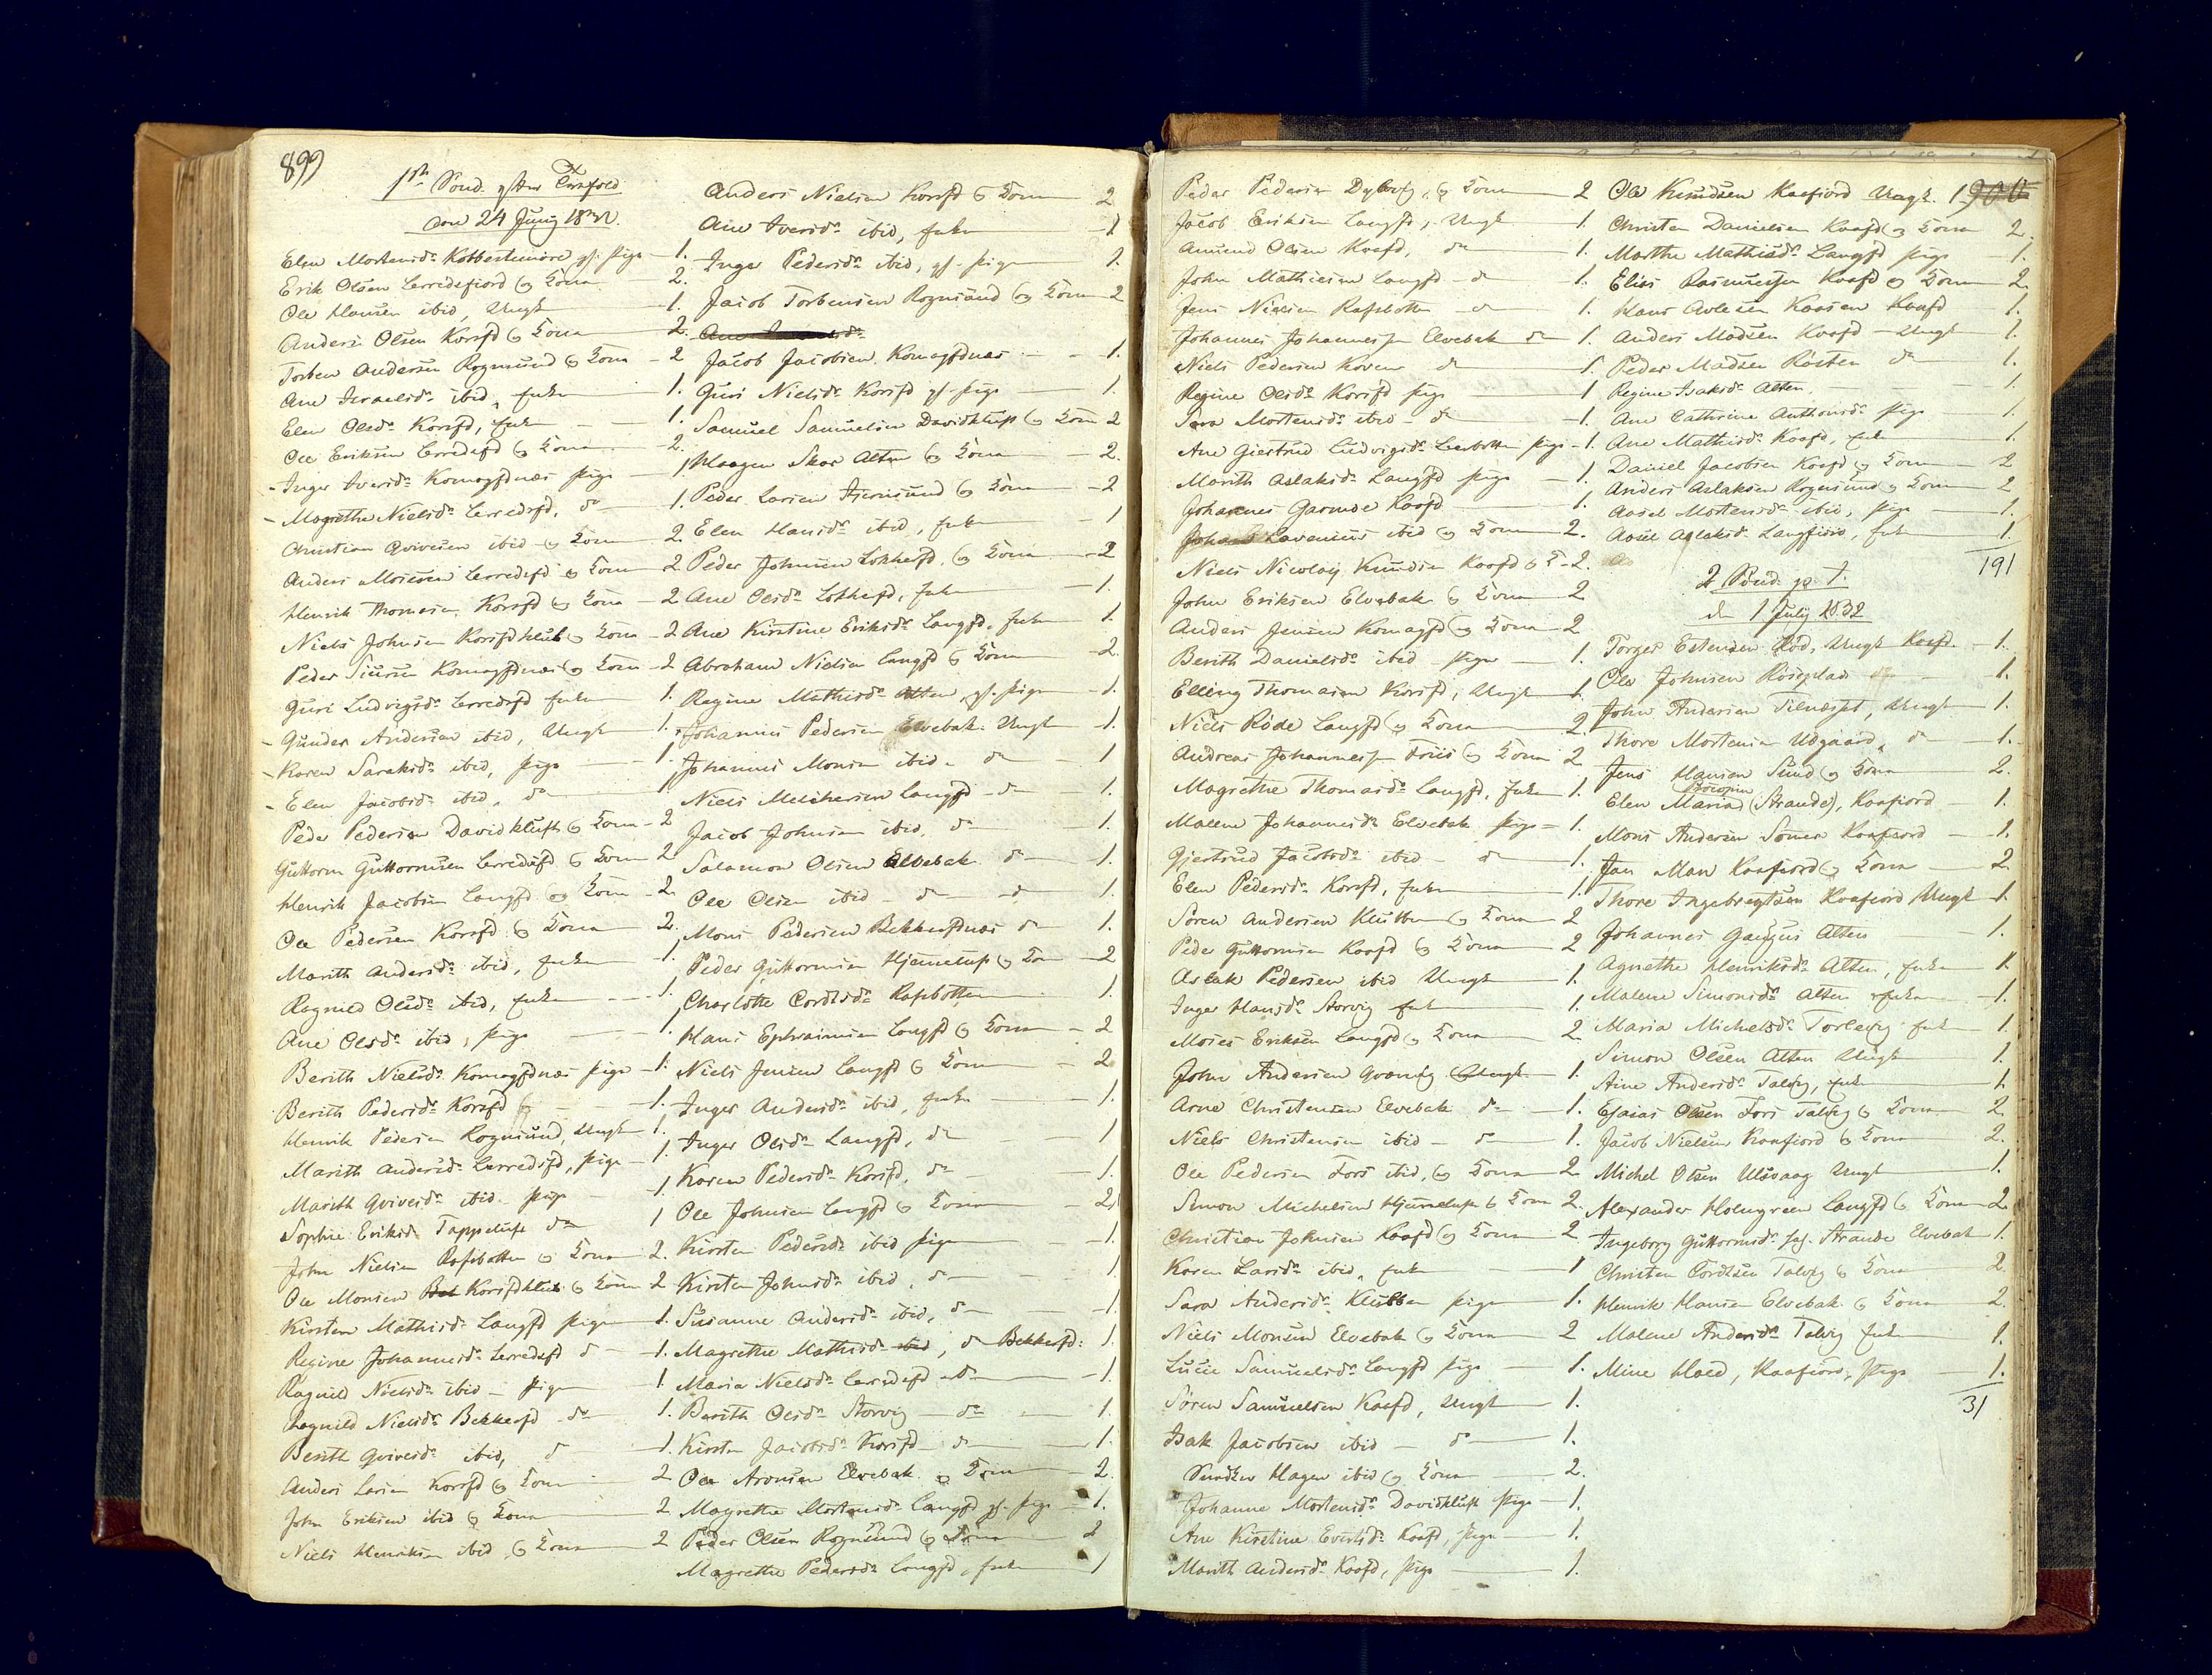 899
1ste Sønd. efter Trinfred
den 24 Junij 1832.
Elen Mortensdr Kobbestenøre gl. Pige 1.
Erik Olsen Lerredsfiord og Kona 2.
Ole Hansen ibid, Ungk 1.
Anders Olsen Korsfd og Kona 2.
Torben Andersen Rognsund og Kona 2
Ane Israelsdr ibid, Enke 1.
Elen Olsdr Korsfd, Enke 1.
Ole Eriksen Lerredsfd og Kona 2.
Inger Iversdr Komagfdnæs pige 1
Magrethe Nielsdr Lerredsfd, do 1.
Christian Qvivesen ibid og Kona 2.
Anders Mosesen Lerredsfd og Kona 2
Henrik Thomesen Korsfd og Kona 2
Niels Johnsen Korsfdklub og Kona 2
Peder Siursen Komagfdnæs og Kona 2
Guri Ludvigsdr Lerredsfd Enke 1.
Gunder Andersen ibid, Ungk 1.
Karen Saraksdr ibid, pige 1
Elen Jacobsdr ibid, do 1
Peder Pedersen Davidkluft og Kona 2
Guttorm Guttormsen Lerredsfd og Kona 2
Henrik Jacobsen Langfd og Kona 2.
Ole Pedersen Korsfd og Kona 2.
Marith Andersdr ibid, Enke 1.
Ragnild Olsdr ibid, Enke 1.
Ane Olsdr ibid, pige 1.
Berith Nielsdr Komagfdnæs pige 1.
Berith Pedersdr Korsfd 1.
Henrik Pedersen Rognsund, Ungk 1.
Marith Andersdr Lerredsfd, pige 1.
Marith Qvivesdr ibid pige 1
Sophie Eriksdr Tappeluft do 1
John Nielsen Rafsbotten og Kona 2.
Ole Monsen Korsfdklub og Kona 2
Kirsten Mathisdr Langfd pige 1.
Regine Johannesdr Lerredsfd do 1.
Ragnild Nielsdr ibid pige 1
Ragnild Nielsdr Bekkerfd do 1.
Berith Qvivesdr ibid, do 1.
Anders Larsen Korsfd og Kona 2
John Eriksen ibid og Kona 2
Niels Henriksen ibid og Kona 2
Anders Nielsen Korsfd og Kona 2
Ane Iversdr ibid, Enke 1
Inger Pedersdr ibid, gl. pige 1.
Jacob Torbensen Rognsund og Kona 2
Jacob Jacobsen Komagfdnæs 1.
Guri Nielsdr Korsfd gl. pige 1.
Samuel Samuelsen Davidkluft og Kona 2
Haagen Skar Alten og Kona 2.
Peder Larsen Stiernsund og Kona 2
Elen Hansdr ibid, Enke 1
Peder Johnsen Lokkerfd, og Kona 2
Ane Olsdr Lokkerfd, Enke 1.
Ane Kirstine Eriksdr Langfd, Enke 1.
Abraham Nielsen Langfd og Kona 2.
Regine Mathisdr Alten, gl. pige 1.
Johannes Pedersen Elvebak Ungk 1.
Johannes Monsen ibid do 1
Niels Melchersen Langfd do 1.
Jacob Johnsen ibid, do 1.
Salamon Olsen Elvebak do 1.
Ole Olsen ibid do do 1.
Mons Pedersen Bekkerfdnæs do 1.
Peder Guttormsen Hjemeluft og Kona 2
Charlotte Cordtsdr Rafsbotten 1.
Hans Ephraimsen Langfd og Kona 2
Niels Jensen Langfd og Kona 2
Inger Andersdr ibid, Enke 1.
Inger Olsdr Langfd, do 1
Karen Pedersdr Korsfd, do 1.
Ole Johnsen Langfd og Kona 2.
Kirsten Pedersdr ibid pige 1.
Kirsten Johnsdr ibid, do 1
Susanne Andersdr ibid, do 1.
Magrethe Mathisdr ibid, do Bekkerfd: 1.
Maria Nielsdr Lerredsfd do 1.
Berith Olsdr Storvig do 1.
Kirsten Jacobsdr Korsfd do 1.
Ole Aronsen Elvebak og Kona 2.
Magrethe Mortensdr Langfd gl. pige 1.
Peder Olsen Rognsund og Kona 2
Magrethe Pedersdr Langfd, Enke 1
Peder Pedersen Dybvig, og Kona 2
Jacob Eriksen Langfd, Ungk 1.
Amund Olsen Kaafd, do 1.
John Mathiesen Langfd do 1.
Jens Nielsen Rafsbotten do 1.
Johannes Johannessen Elvebak do 1.
Niels Pedersen Koven do 1.
Regine Olsdr Korsfd pige 1
Sara Mortensdr ibid do 1.
Ane Giertrud Ludvigsdr Leerbotten pige 1.
Marith Aslaksdr Langfd pige 1.
Johannes Garnde Kaafd 1.
Johan Lavenius ibid og Kona 2.
Niels Nicolay Knudsen Kaafd og K 2.
John Eriksen Elvebak og Kona 2
Anders Jensen Komagfd og Kona 2
Berith Danielsdr ibid pige 1.
Elling Thomasen Korsfd, Ungk 1.
Niels Røde Langfd og Kona 2.
Andreas Johannessen Friis og Kona 2
Magrethe Thomasdr Langfd, Enke 1.
Malene Johannesdr Elvebak pige 1.
Gjertrud Jacobsdr ibid do 1.
Elen Pedersdr Korsfd, Enke 1.
Søren Andersen Klubben og Kona 2
Peder Guttormsen Kaafd og Kona 2
Aslak Pedersen ibid Ungk 1.
Inger Hansdr Storvig Enke 1.
Moses Eriksen Langfd og Kona 2
John Andersen Qvænvig Ungk 1.
Arne Christensen Elvebak do 1.
Niels Christensen ibid do 1.
Ole Pedersen Fors ibid, og Kona 2
Simon Michelsen Hjemeluft og Kona 2.
Christian Johnsen Kaafd og Kona 2
Karen Larsdr ibid, Enke 1
Sara Andersdr Klubben pige 1.
Niels Monsen Elvebak og Kona 2
Lucie Samuelsdr Langfd pige 1.
Søren Samuelsen Kaafd, Ungk 1.
Isak Jacobsen ibid do 1.
Hagen ibid og Kona 2.
Johanne Mortensdr Davidkluft pige 1.
Ane Kirstine Evertsdr Kaafd, pige 1.
Marith Andersdr Kaafd, pige 1.
Ole Knudsen Kaafiord Ungk. 1 900
Christen Danielsen Kaafd og Kona 2.
Marthe Mathisdr Langfd pige 1.
Elias Rasmussen Kaafd og Kona 2.
Hans Avlesen Kaasen Kaafd 1.
Anders Madsen Kaafd Ungk 1.
Peder Madsen Røsten do 1.
Regine Isaksdr Alten 1.
Ane Cathrine Anthonsdr pige 1.
Ane Mathisdr Kaafd, Enke 1.
Daniel Jacobsen Kaafd og Kona 2
Anders Aslaksen Rognsund og Kona 2
Aasel Mortensdr ibid, pige 1.
Aasel Aslaksdr Langfiord, Enke 1.
191
2 Sønd. p. T.
d. 1 July 1832
Torger Estensen Rød, Ungk Kaafd. 1.
Ole Johnsen Røseplads 1.
John Andersen Tilnesset, Ungk 1.
Thore Mortensen Udgaard, do 1.
Jens Hansen Sund og Kona 2.
Elen Maria (Strande), Kaafiord 1.
Mons Andersen Somer Kaafiord 1.
Jan Man Kaafiord og Kona 2.
Thore Ingebregtsen Kaafiord Ungk 1.
Johannes Gangus Alten 1.
Agnethe Henriksdr Alten, Enke 1.
Malene Simonsdr Alten Enke 1.
Maria Michelsdr Torlevig Enke 1.
Simon Olsen Alten Ungk 1.
Ane Andersdr Talvig, Enke 1.
Esaias Olsen Fors Talvig og Kona 2
Jacob Nielsen Kaafiord og Kona 2.
Michel Olsen Ulsvaag Ungk 1.
Alexander Holmgreen Langfd og Kona 2
Ingeborg Guttormsdr Strande Elvebak 1.
Christen Cordtsen Talvig og Kona 2.
Henrik Hansen Elvebak og Kona 2.
Malene Andersdr Talvig Enke 1.
Mine Hoed, Kaafiord, pige 1.
31